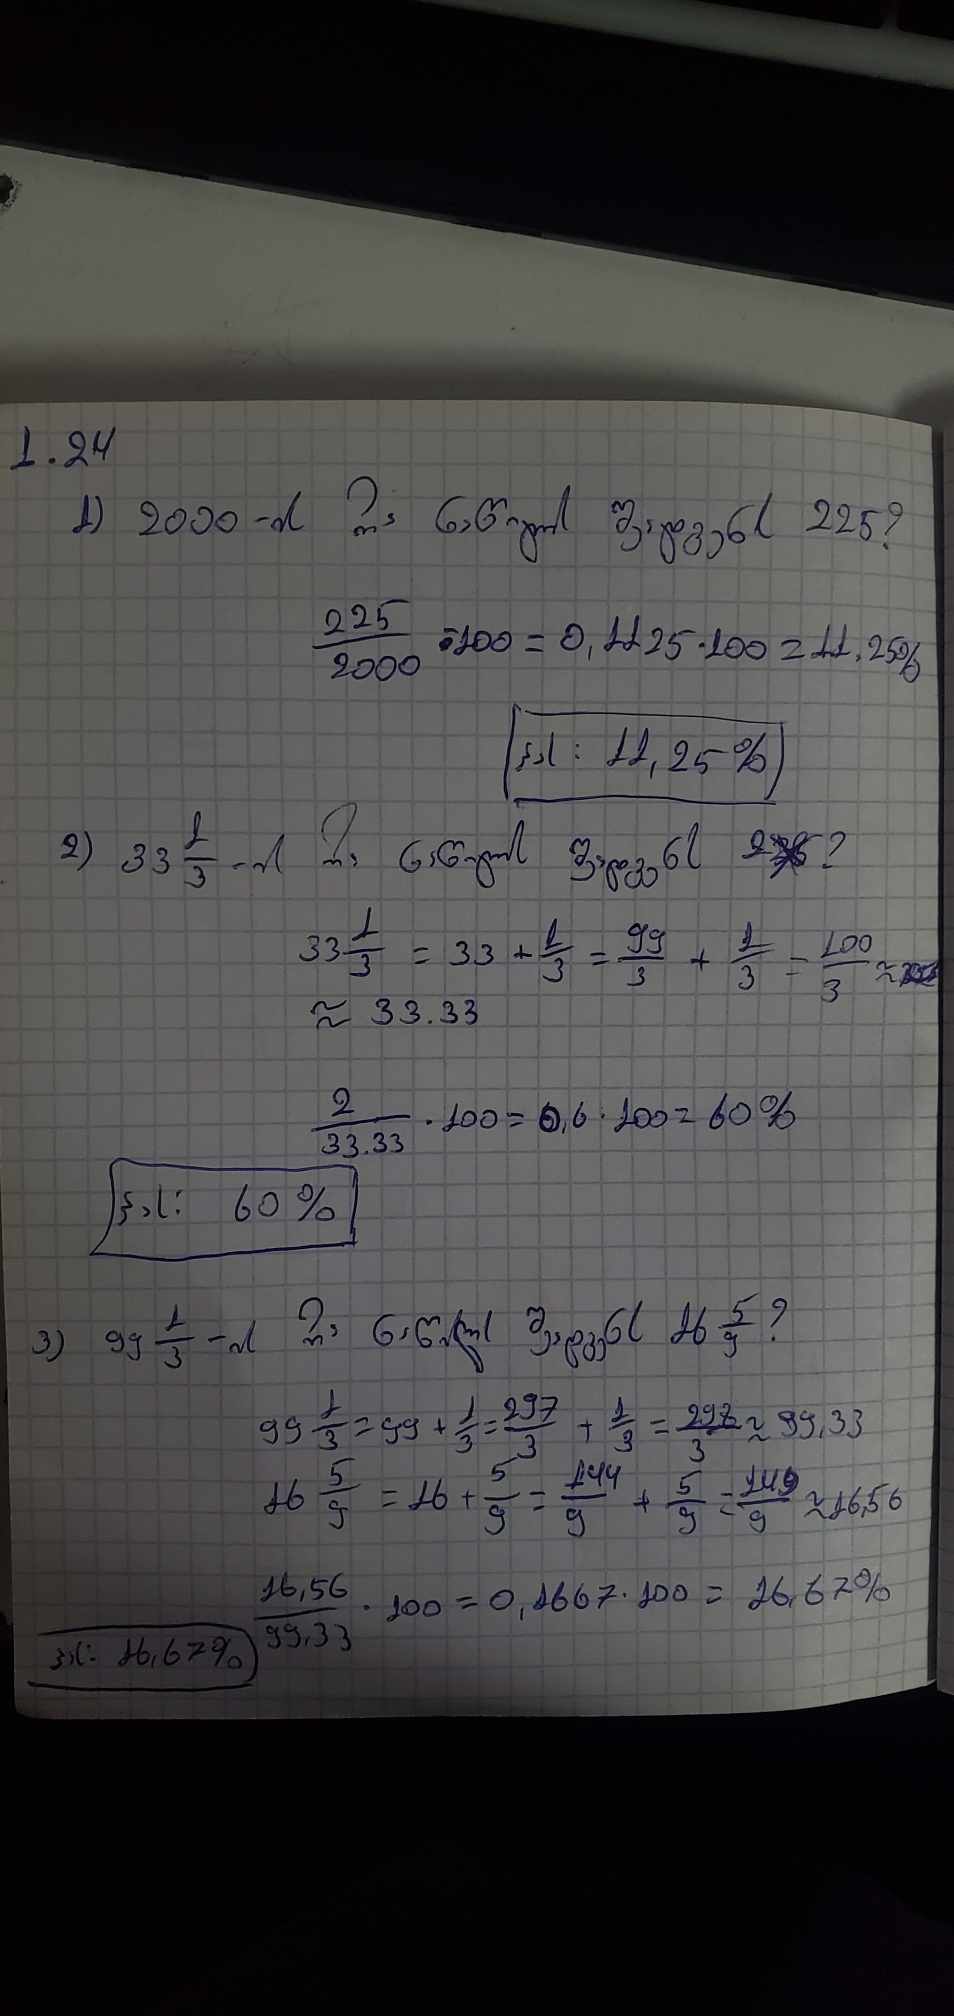 1.24
1) 2000-ის რა ნაწილს შეადგენს 225?
225/2000 · 100 = 0,1125 · 100 = 11.25%
პას: 11,25%
2) 33 1/3 -ის რა ნაწილს შეადგენს 2?
33 1/3 = 33 + 1/3 = 99/3 + 1/3 = 100/3 ≈
≈ 33.33
2/33.33 · 100 = 0,6 · 100 = 60%
პას: 60%
3) 99 1/3 -ის რა ნაწილს შეადგენს 16 5/9?
99 1/3 = 99 + 1/3 = 297/3 + 1/3 = 298/3 ≈ 99,33
16 5/9 = 16 + 5/9 = 144/9 + 5/9 = 149/9 ≈ 16,56
16,56/99,33 · 100 = 0,1667 · 100 = 16,67%
პას: 16,67%